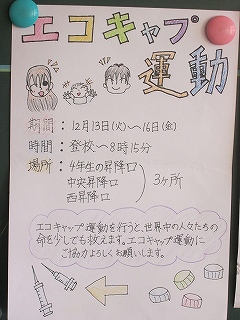 エコキャプ運動
期間：12月13日(火)〜16日(金)
時間：登校〜8時15分
場所：4年生の昇降口
中央昇降口
西昇降口
3ヶ所
エコキャプ運動を行うと、世界中の人々たちの
命を少しでも救えます。エコキャプ運動に
ご協力よろしくお願いします。